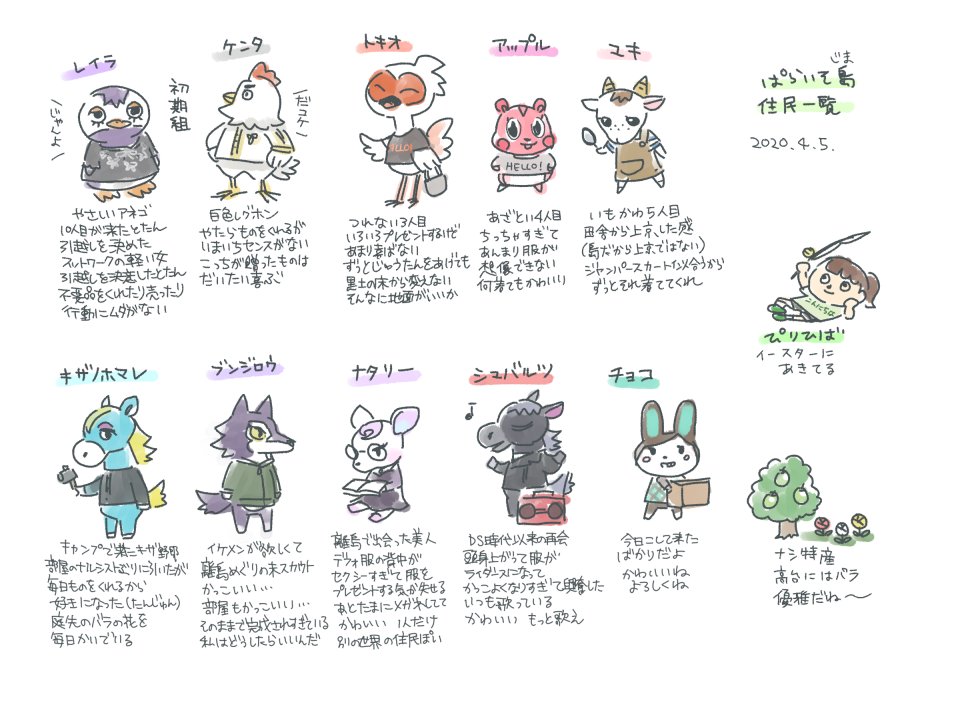 ぱらいそ島
じま
住民一覧
2020.4.5.
レイラ
にゃんよ
初期組
やさしいアネゴ
10人目が来たとたん
引越しを決めた
フットワークの軽い女
引越しを決意したとたん
不要品をくれたり売ったり
行動にムダがない
ケンタ
だコケ
白色レグホン
やたらものをくれるが
いまいちセンスがない
こっちが贈ったものは
だいたい喜ぶ
トキオ
HELLO!
つれない3人目
いろいろプレゼントするけど
あまり喜ばない
ずっとじゅうたんをあげても
黒土の床から変えない
そんなに地面がいいか
アップル
HELLO!
あざとい4人目
ちっちゃすぎて
あんまり服が
想像できない
何着てもかわいい
ユキ
いもかわ5人目
田舎から上京した感
(島だから上京ではない)
ジャンパースカートが似合うから
ずっとそれ着ててくれ
こんにちは
ぴりひば
イースターに
あきてる
キザノホマレ
キャンプで来たキザ野郎
部屋のナルシストむりに引いたが
毎日ものをくれるから
好きになった(たんじゅん)
庭先のバラの花を
毎日かいでいる
ブンジロウ
イケメンが欲しくて
離島めぐりの末スカウト
かっこいい…
部屋もかっこいい…
そのままで完成されすぎている
私はどうしたらいいんだ
ナタリー
離島で出会った美人
デフォ服の背中が
セクシーすぎて服を
プレゼントする気が失せる
あとたまにメガネしてて
かわいい 1人だけ
別の世界の住民ぽい
シュバルツ
DS時代以来の再会
頭身上がって服が
ライダースになって
かっこよくなりすぎてて興奮した
いつも歌っている
かわいい もっと歌え
チョコ
今日こして来た
ばかりだよ
かわいいね
よろしくね
ナシ特産
高台にはバラ
優雅だね〜